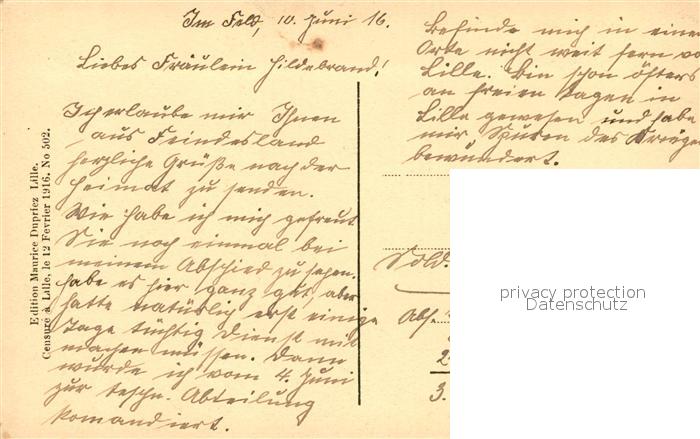 Im Feld, 10. Juni 16.
Liebes Fräulein Hildebrand!
Ich erlaube mir Ihnen
aus Feindesland
herzliche Grüße nach der
Heimat zu senden.
Wie habe ich mich gefreut
Sie noch einmal bei
meinem Abschied zu sehen.
habe es hier ganz gut, aber
hatte natürlich erst einige
Tage tüchtig Dienst mit
machen müssen. Dann
wurde ich vom 4. Juni
zur techn. Abteilung
komandiert.
befinde mich in einem
Orte nicht weit fern vo
Lille. Bin schon öfters
an freien Tagen in
Lille gewesen und habe
mir Spuren des Krieges
bewundert.
Sold.
Abs.
2
3.
Edition Maurice Dupriez Lille.
Censuré à Lille, le 12 Fevrier 1916. No 502.
privacy protection
Datenschutz